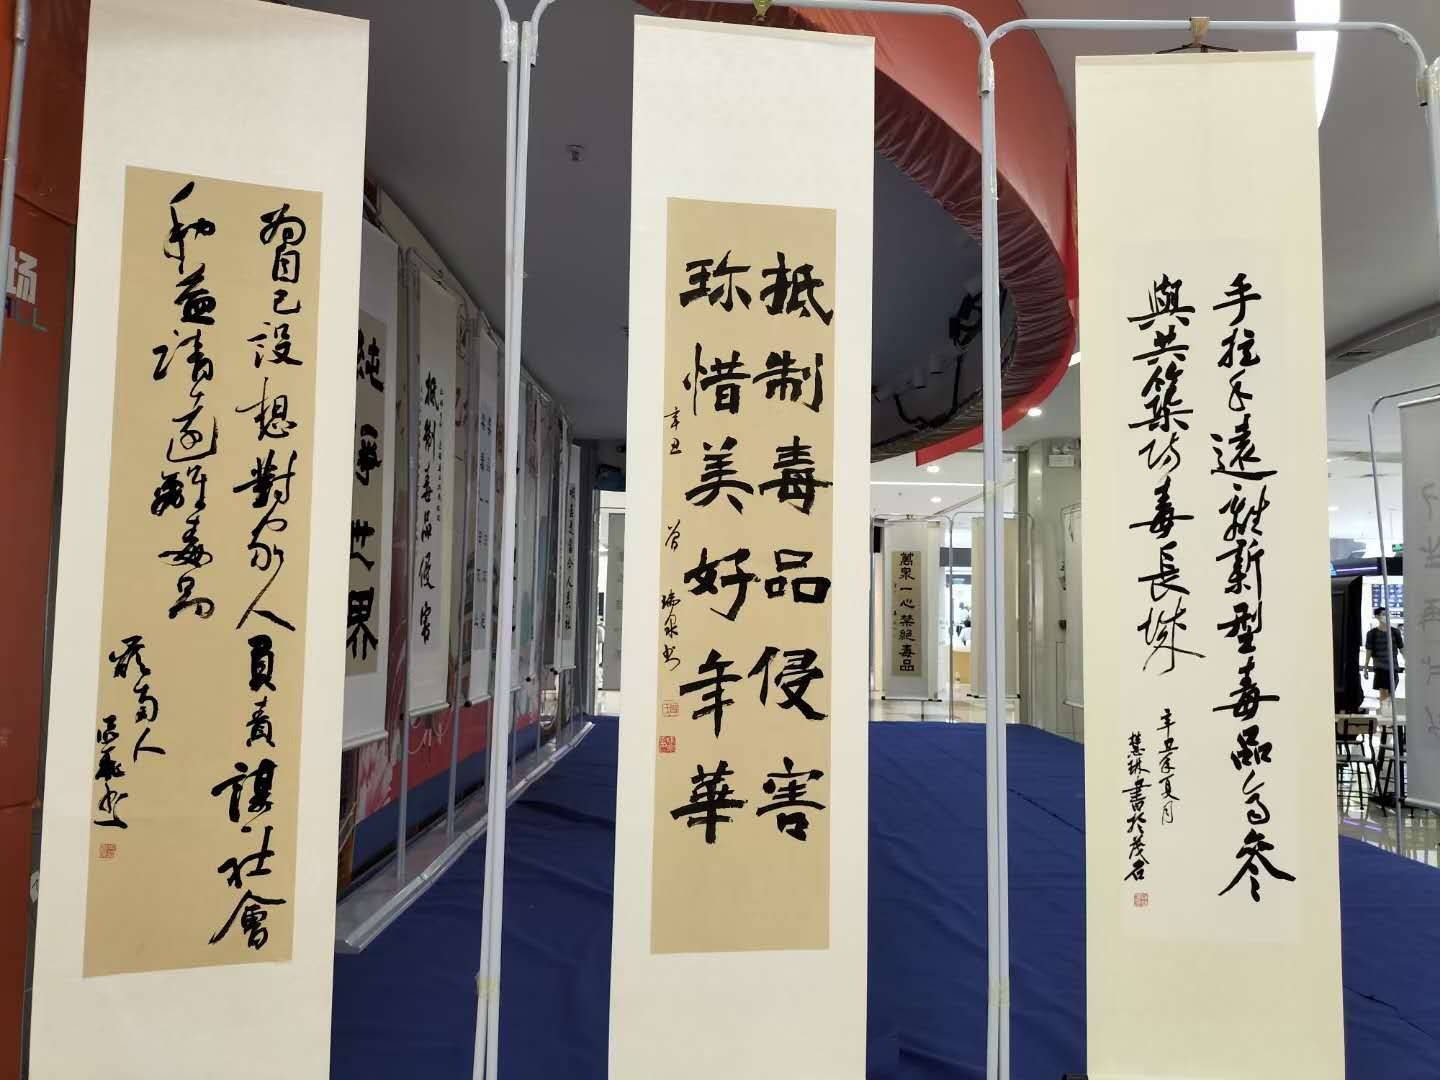 為自己設想對家人負責謀社會
利益請遠離毒品
嶺南人
抵制毒品侵害
珍惜美好年華
辛丑 曾瑞泉书
手拉手遠離新型毒品參
與共築防毒長城
辛丑年夏月
慧琳書於茂名
純淨世界
抵制毒品侵害
萬衆一心禁絕毒品
场